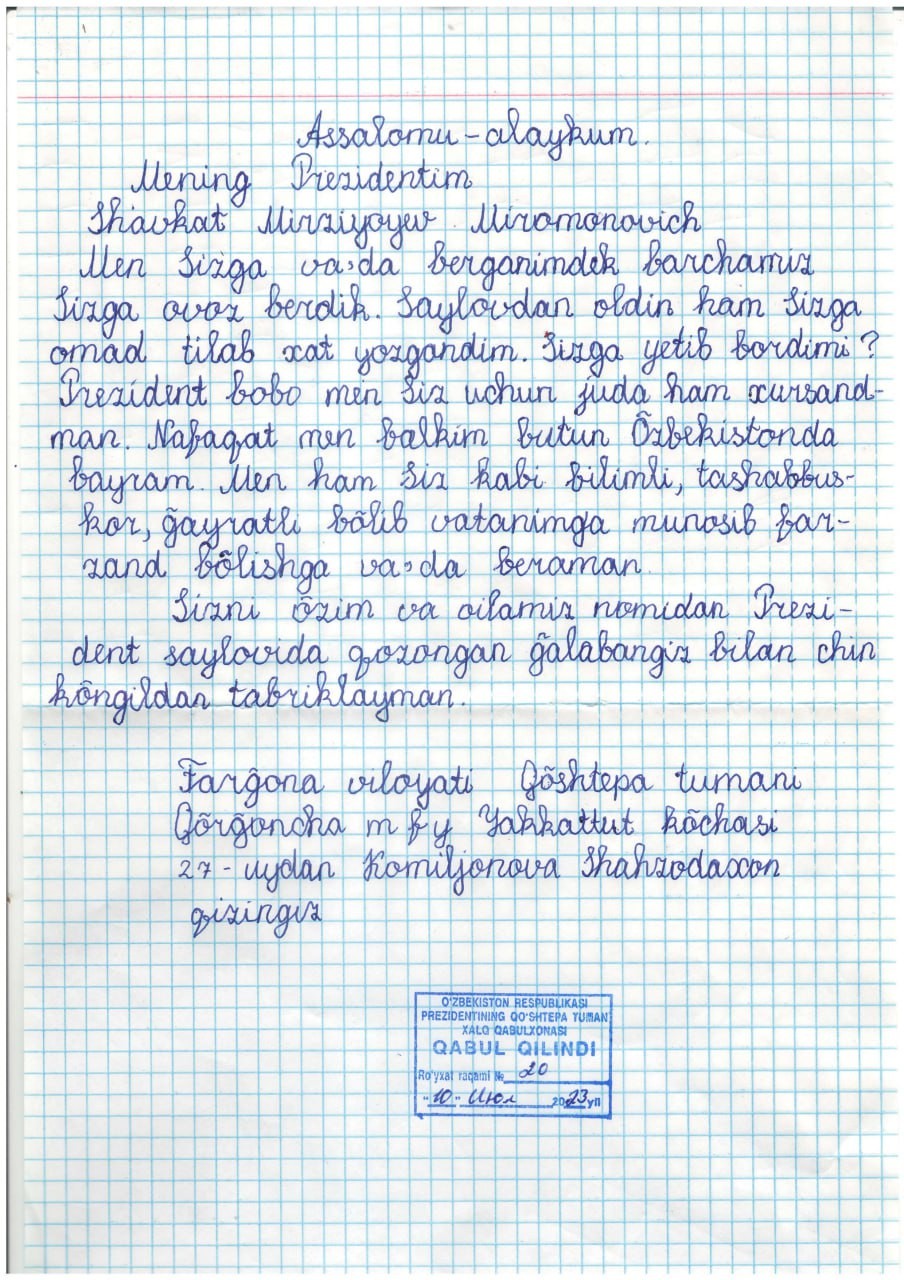 Assalomu-alaykum.
Mening Prezidentim
Shavkat Mirziyoyev Miromonovich
Men Sizga va'da berganimdek barchamiz
Sizga ovoz berdik. Saylovdan oldin ham Sizga
omad tilab xat yozgandim. Sizga yetib bordimi?
Prezident bobo men Siz uchun juda ham xursand-
man. Nafaqat men balkim butun Õzbekistonda
bayram. Men ham Siz kabi bilimli, tashabbus-
kor, g̃ayratli bõlib vatanimga munosib far-
zand bõlishga va'da beraman.
Sizni õzim va oilamiz nomidan Prezi-
dent saylovida qozongan g̃alabangiz bilan chin
kõngildan tabriklayman.
Farg̃ona viloyati Qõshtepa tumani
Qõrg̃oncha m f y Yakkattut kõchasi
27-uydan Komiljonova Shahzodaxon
qizingiz
O'ZBEKISTON RESPUBLIKASI
PREZIDENTINING QO'SHTEPA TUMAN
XALQ QABULXONASI
QABUL QILINDI
Ro'yxat raqami № 20
"10" Июл 2023 yil